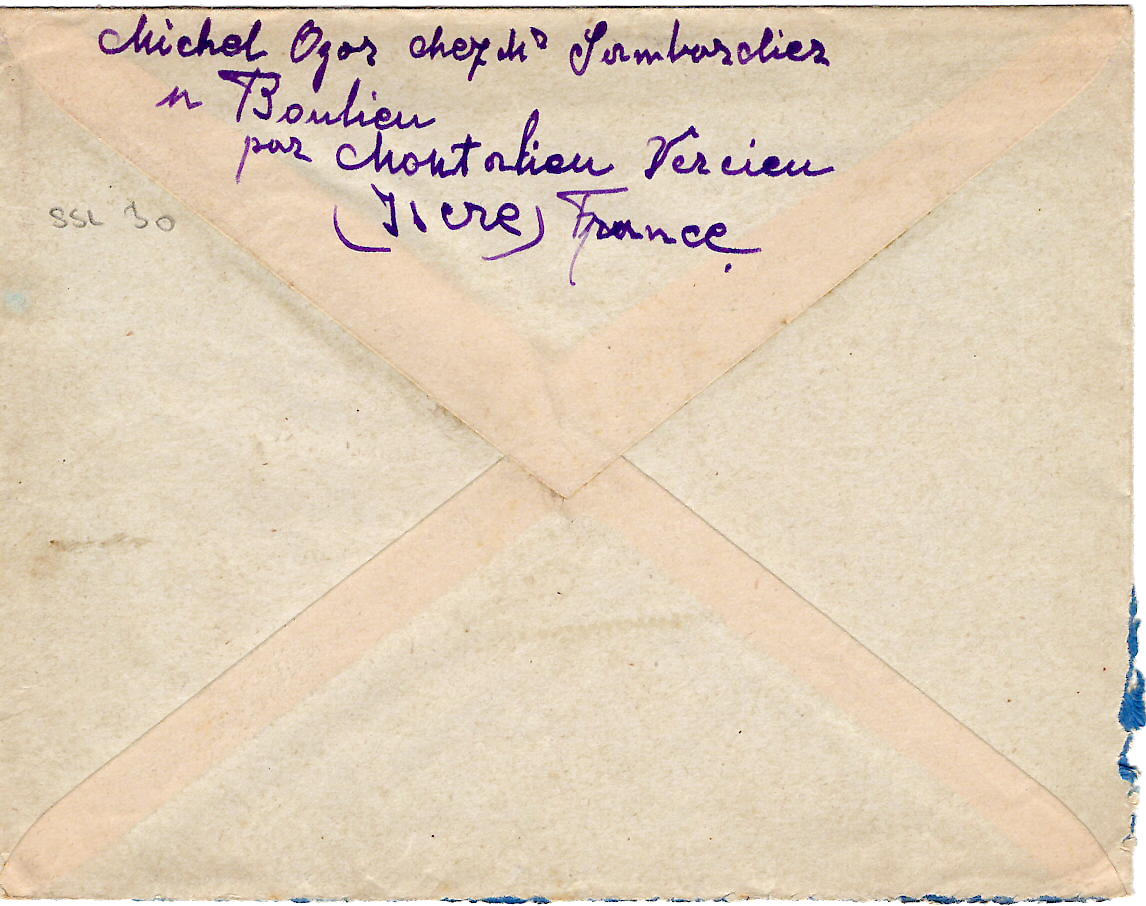 Michel Ogor chez Mr
n Boulieu
par Montalieu Vercieu
(Isère) France
SSL 30